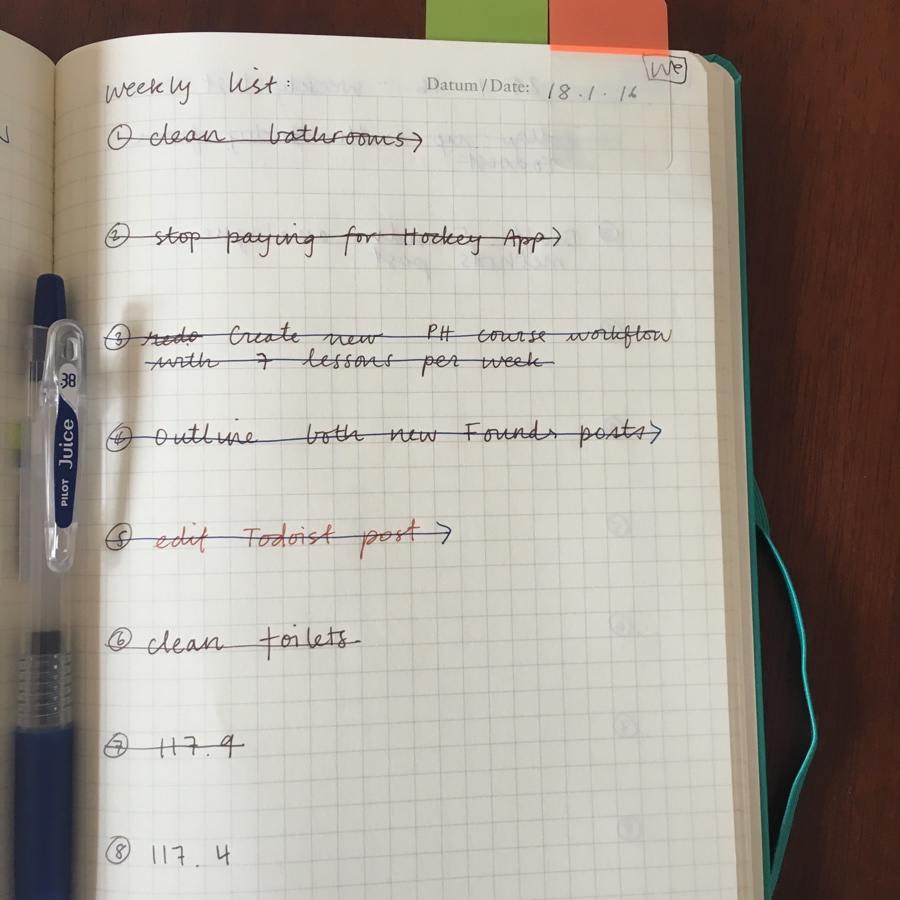 We
weekly list:
Datum/Date: 18.1.16
① clean bathrooms
② stop paying for Hockey App
③ redo Create new PH course workflow
with 7 lessons per week
④ outline both new Founds posts
⑤ edit Todoist post
⑥ clean toilets
⑦ 117.9
⑧ 117.4
PILOT Juice 38